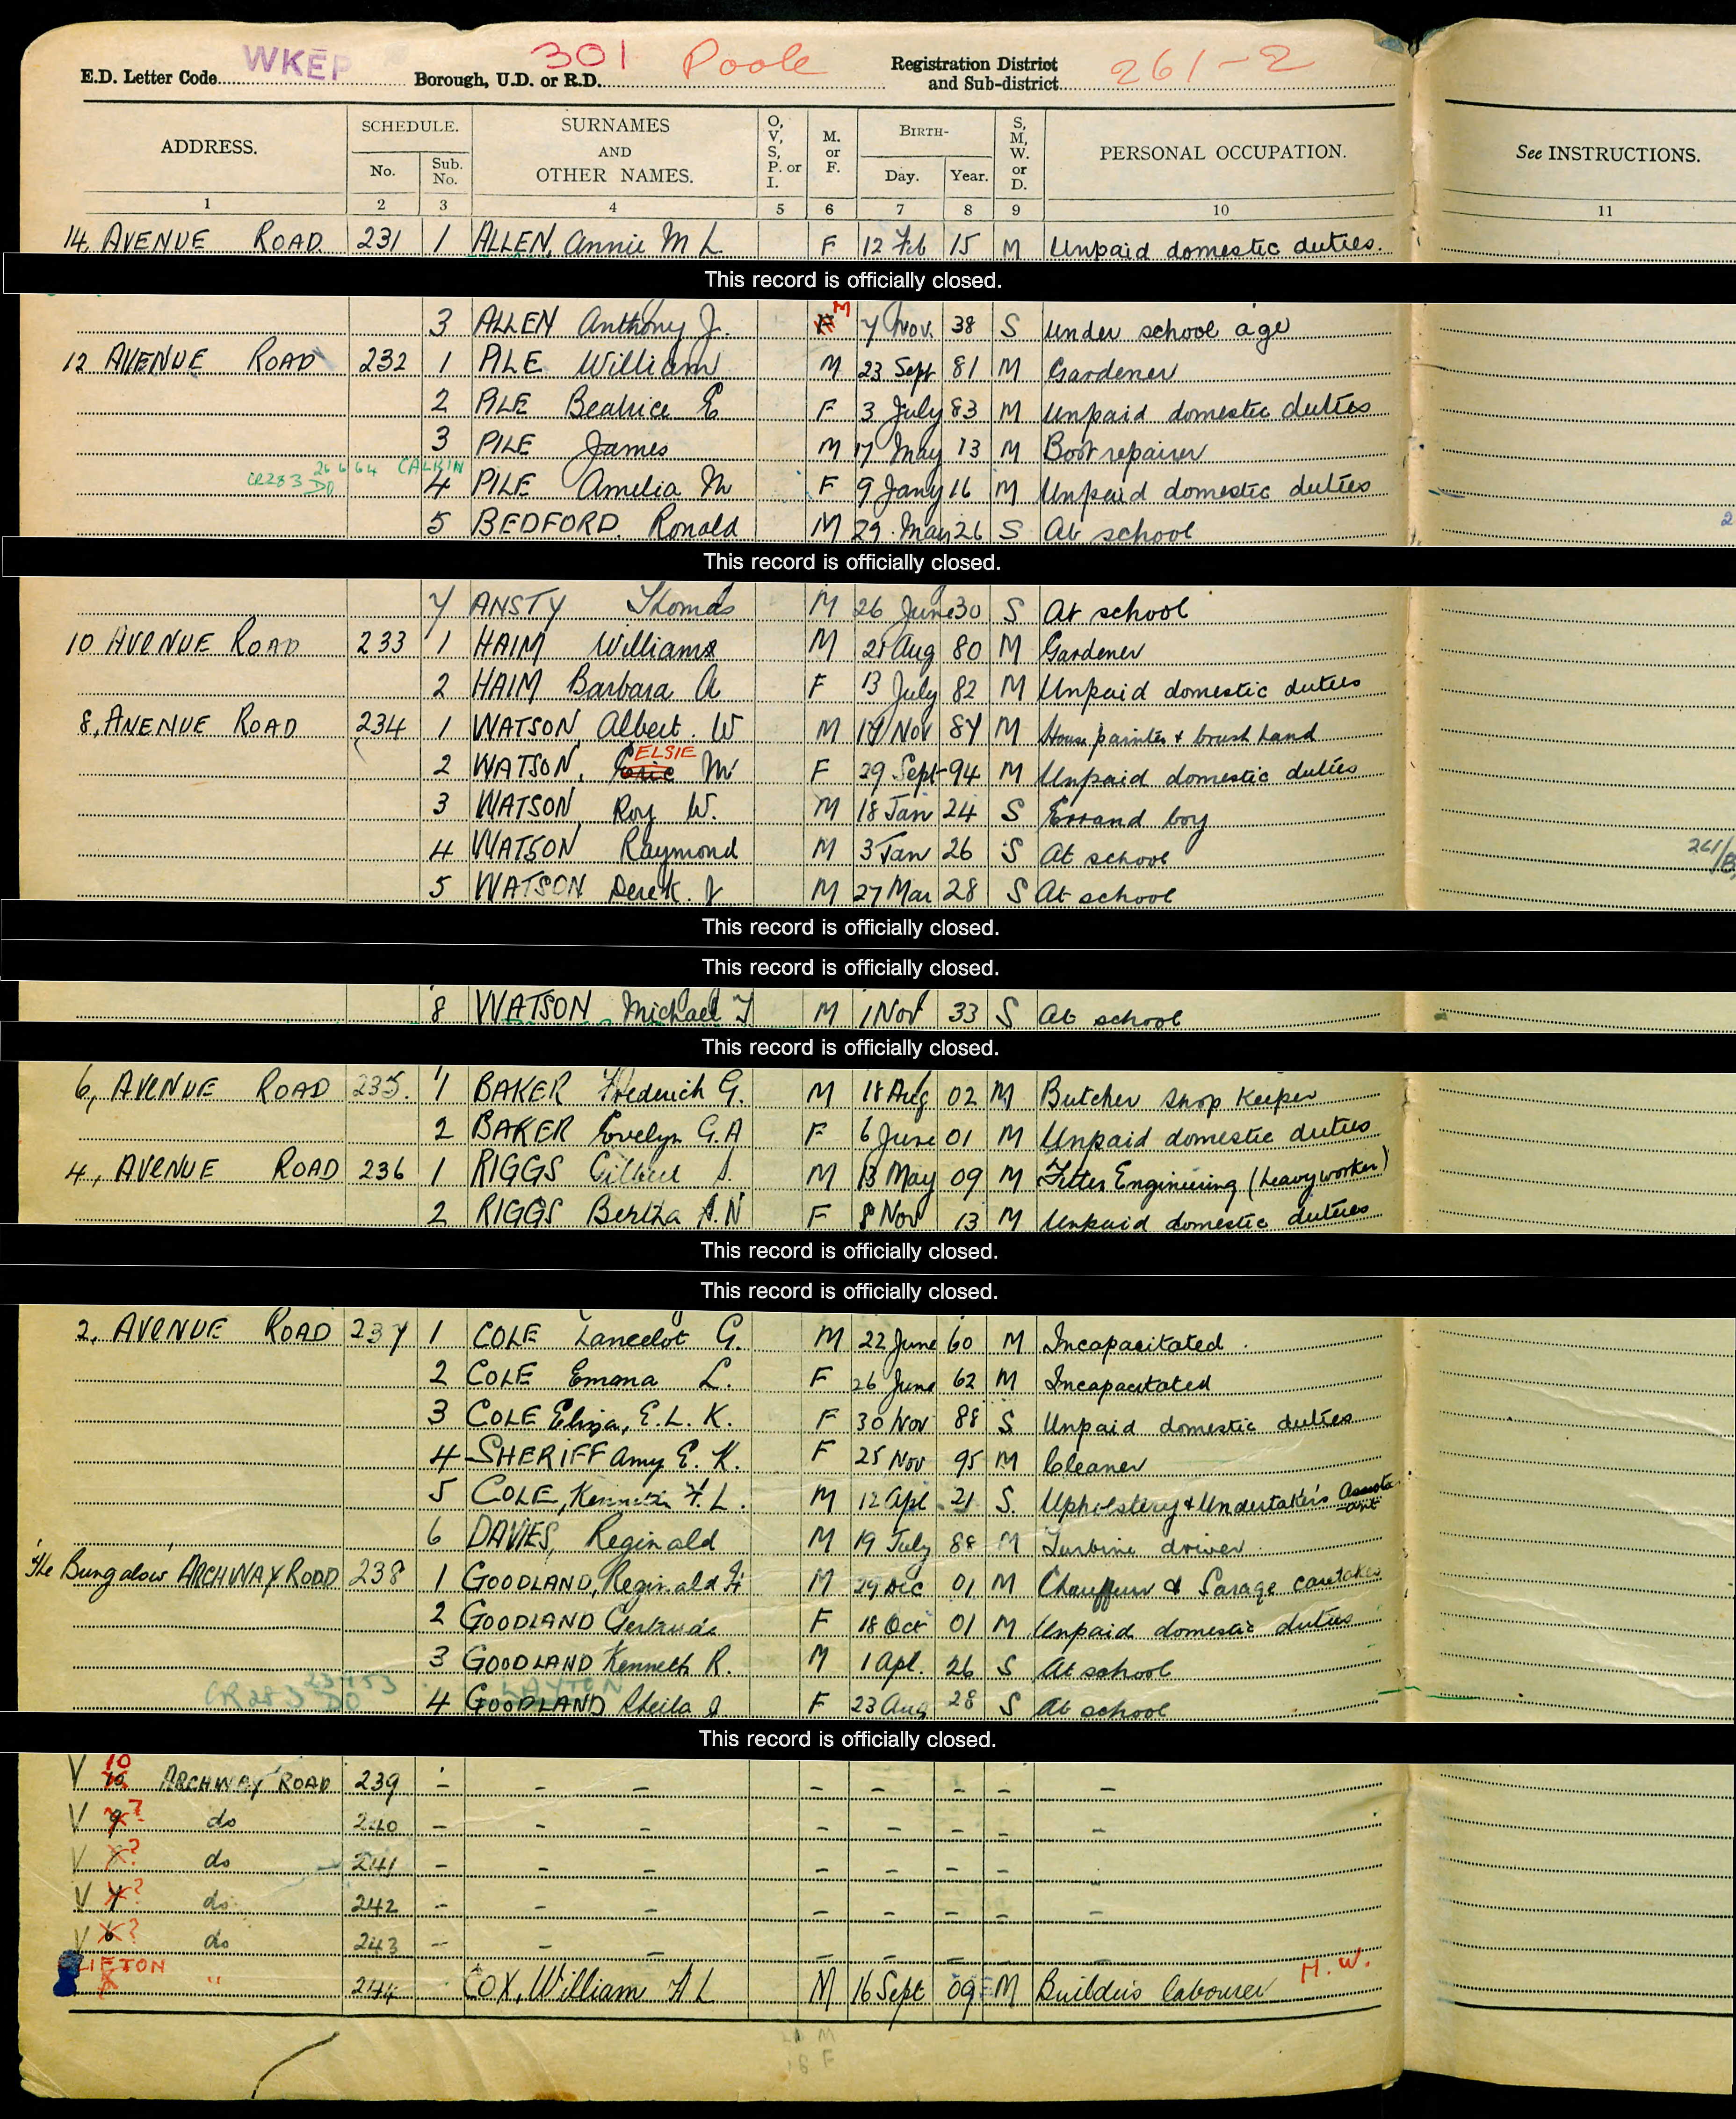 E.D. Letter Code WKEP Borough, U.D. or R.D. 301 Poole Registration District and Sub-district 261-2
ADDRESS. SCHEDULE. No. Sub. No. SURNAMES AND OTHER NAMES. O, V, S, P. or I. M. or F. BIRTH- Day. Year. S, M, W. or D. PERSONAL OCCUPATION. See INSTRUCTIONS.
1 2 3 4 5 6 7 8 9 10 11
14, AVENUE ROAD 231 1 ALLEN, Annie M L F 12 Feb 15 M Unpaid domestic duties.
This record is officially closed.
3 ALLEN Anthony J. M 7 Nov. 38 S Under school age
12 AVENUE ROAD 232 1 PILE William M 23 Sept 81 M Gardener
2 PILE Beatrice E F 3 July 83 M Unpaid domestic duties
3 PILE James M 17 May 13 M Boot repairer
CR283 26 6 64 DO CALKIN
4 PILE Amelia M F 9 Jany 16 M Unpaid domestic duties
5 BEDFORD. Ronald M 29 May 26 S At school
2
This record is officially closed.
7 ANSTY Thomas M 26 June 30 S At school
10 AVENUE ROAD 233 1 HAIM William M 21 Aug 80 M Gardener
2 HAIM Barbara A F 13 July 82 M Unpaid domestic duties
8, AVENUE ROAD 234 1 WATSON Albert. W M 17 Nov 87 M House painter + brush hand
ELSIE
2 WATSON, Eric M F 29 Sept 94 M Unpaid domestic duties
3 WATSON Roy W. M 18 Jan 24 S Errand boy
4 WATSON Raymond M 3 Jan 26 S At school
261/B
5 WATSON Derek. J M 27 Mar 28 S At school
This record is officially closed.
This record is officially closed.
8 WATSON Michael J M 1 Nov 33 S At school
This record is officially closed.
6, AVENUE ROAD 235. 1 BAKER Frederich G. M 18 Aug 02 M Butcher Shop Keeper
2 BAKER Evelyn G.A F 6 June 01 M Unpaid domestic duties
4, AVENUE ROAD 236 1 RIGGS Gilbert S. M 13 May 09 M Fitter Engineering (heavy worker)
2 RIGGS Bertha A.N F 8 Nov 13 M Unpaid domestic duties
This record is officially closed.
This record is officially closed.
2, AVENUE ROAD 237 1 COLE Lancelot G. M 22 June 60 M Incapacitated.
2 COLE Emma L. F 26 June 62 M Incapacitated
3 COLE Eliza, E.L.K. F 30 Nov 88 S Unpaid domestic duties
4 SHERIFF Amy E. K. F 25 Nov 95 M Cleaner
5 COLE, Kenneth F. L. M 12 Apl 21 S. Upholstery + Undertakers Assistant
6 DAVIES, Reginald M 19 July 88 M Turbine driver
The Bungalow, ARCHWAY ROAD 238 1 GOODLAND, Reginald H M 29 Dec 01 M Chauffeur & Garage caretaker
2 GOODLAND Gertrude F 18 Oct 01 M Unpaid domestic duties
3 GOODLAND Kenneth R. M 1 Apl. 26 S At school
CR283 DO LAYTON
4 GOODLAND Sheila J F 23 Aug 28 S At school
This record is officially closed.
V 10 ARCHWAY ROAD 239 - - - - - - - -
V 9 ? do 240 - - - - - - - -
V ? do 241 - - - - - - -
V ? do 242 - - - - - - - -
V 6 ? do 243 - - - - - - -
LIFTON " 244 COX, William A L M 16 Sept 09 M Builders labourer H.W.